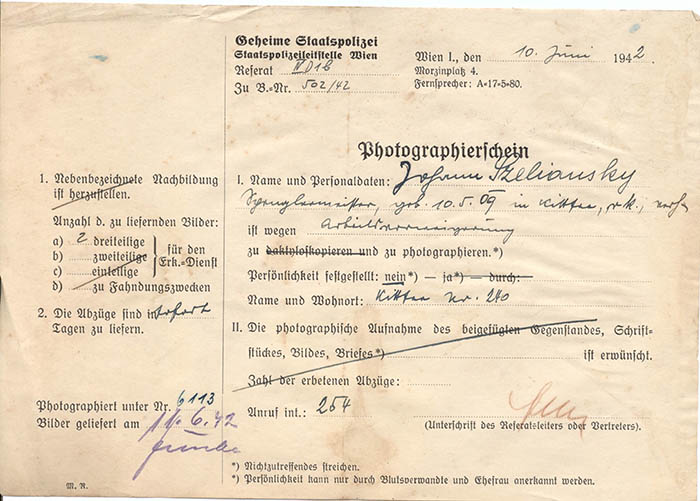 Geheime Staatspolizei
Staatspolizeileitstelle Wien
Referat IV D 1 b
Zu B.=Nr. 502/42
Wien I., den 10. Juni 1942.
Morzinplatz 4.
Fernsprecher: A=17=5=80.
Photographierschein
1. Nebenbezeichnete Nachbildung
ist herzustellen.
Anzahl d. zu liefernden Bilder:
a) 2 dreiteilige
b) zweiteilige
c) einteilige
für den
Erk.=Dienst
d) zu Fahndungszwecken
2. Die Abzüge sind in sofort
Tagen zu liefern.
Photographiert unter Nr. 6113
Bilder geliefert am 11. 6. 42
M. R.
I. Name und Personaldaten: Johann Szeliansky
Spenglermeister, geb. 10.5.09 in Kittsee, r.k., verh.
ist wegen Arbeitsverweigerung
zu daktyloskopieren und zu photographieren.*)
Persönlichkeit festgestellt: nein*) — ja*) — durch:
Name und Wohnort: Kittsee Nr. 240
II. Die photographische Aufnahme des beigefügten Gegenstandes, Schrift=
stückes, Bildes, Briefes*) ist erwünscht.
Zahl der erbetenen Abzüge:
Anruf int.: 254
(Unterschrift des Referatsleiters oder Vertreters).
*) Nichtzutreffendes streichen.
*) Persönlichkeit kann nur durch Blutsverwandte und Ehefrau anerkannt werden.